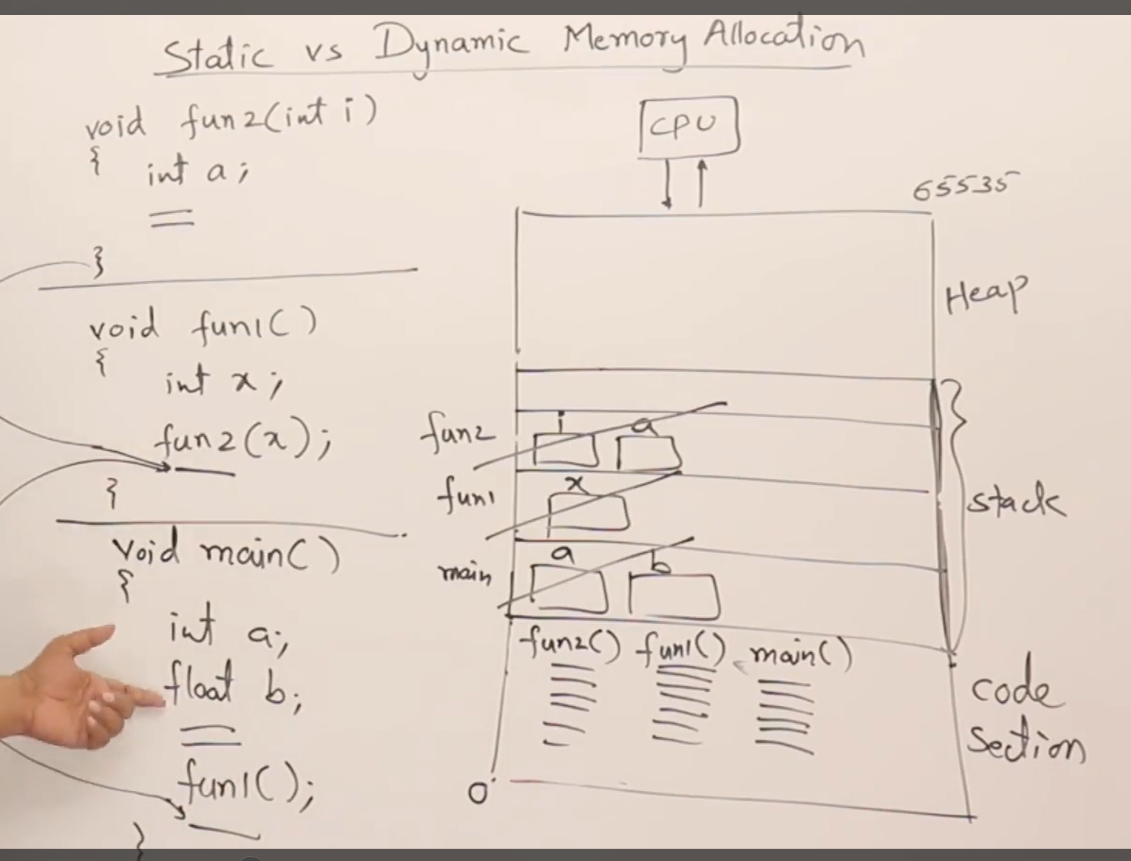 Static vs Dynamic Memory Allocation
void fun2(int i)
{ int a;
}
void fun1()
{
int x;
fun2(x);
}
void main()
{
int a;
float b;
fun1();
}
CPU
65535
Heap
i a
fun2
x
fun1
stack
a b
main
fun2() fun1() main()
code
section
0